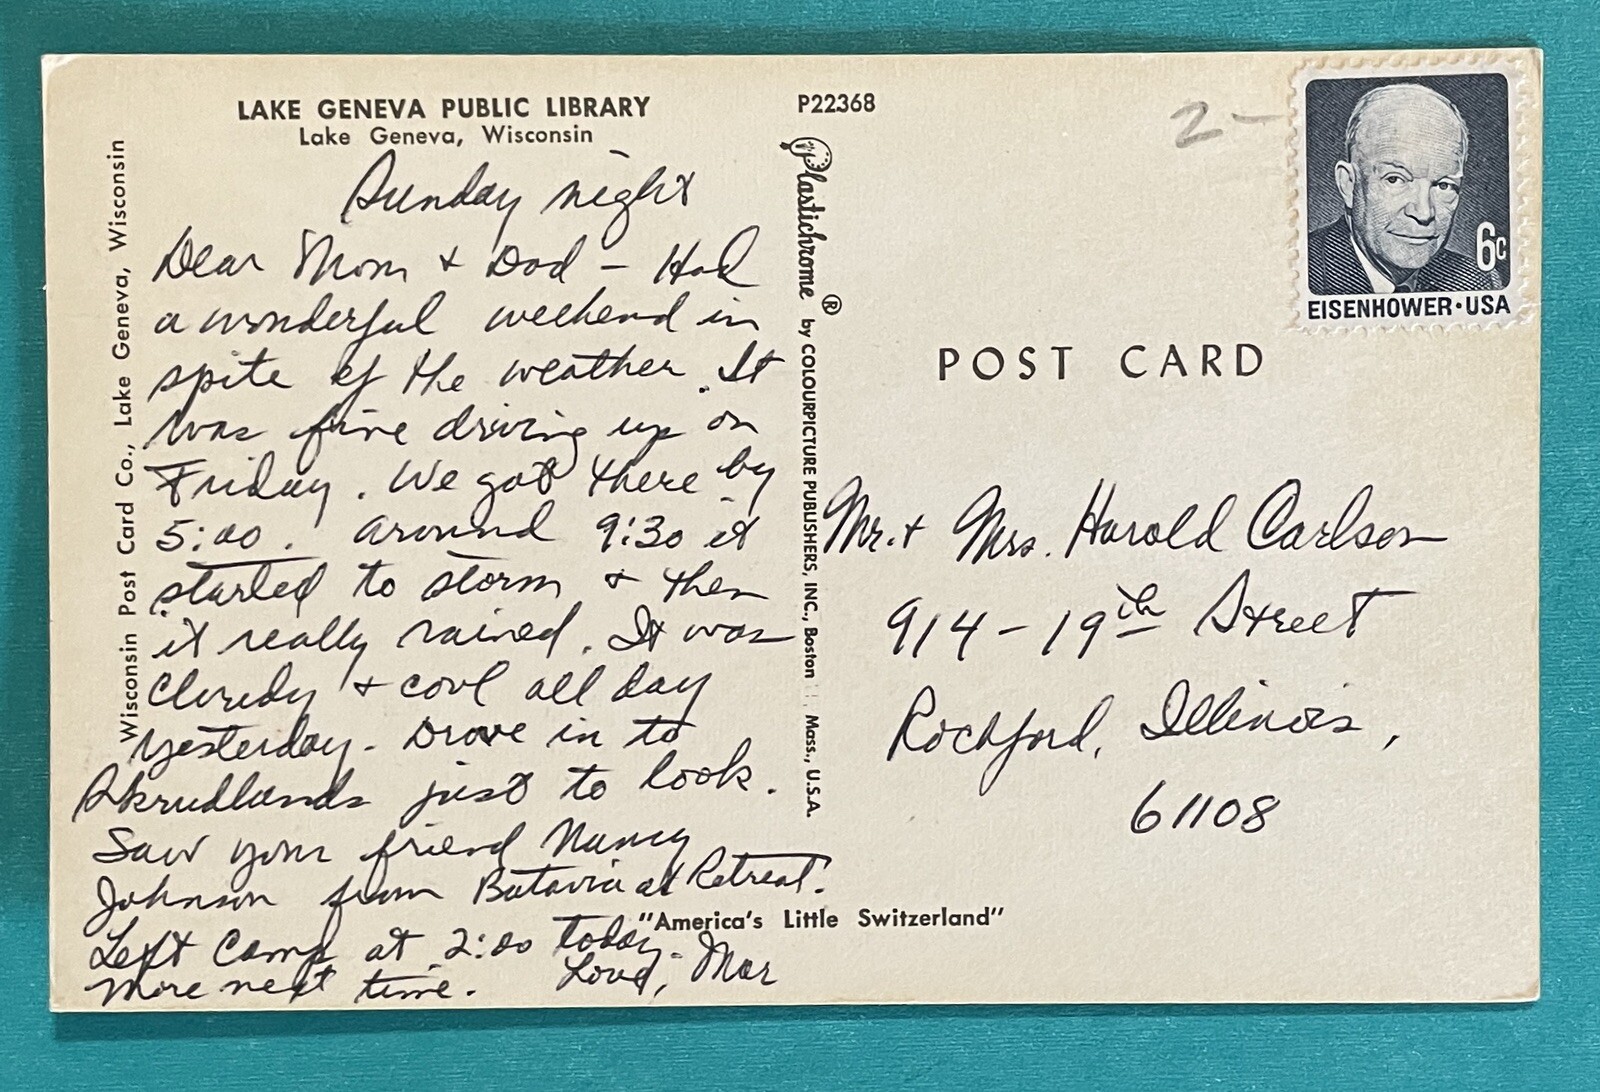 LAKE GENEVA PUBLIC LIBRARY
Lake Geneva, Wisconsin
Wisconsin Post Card Co., Lake Geneva, Wisconsin
Sunday night
Dear Mom + Dad – Had
a wonderful weekend in
spite of the weather. It
was fine driving up on
Friday. We got there by
5:00. Around 9:30 it
started to storm + then
it really rained. It was
cloudy + cool all day
yesterday. Drove in to
just to look.
Saw your friend Nancy
Johnson from Batavia at Retreat.
Left Camp at 2:00 today.
More next time. Love, Mar
P22368
Plastichrome ® by COLOURPICTURE PUBLISHERS, INC., Boston Mass., U.S.A.
"America's Little Switzerland"
2–
6c
EISENHOWER·USA
POST CARD
Mr. + Mrs. Harold Carlson
914 – 19th Street
Rockford, Illinois,
61108